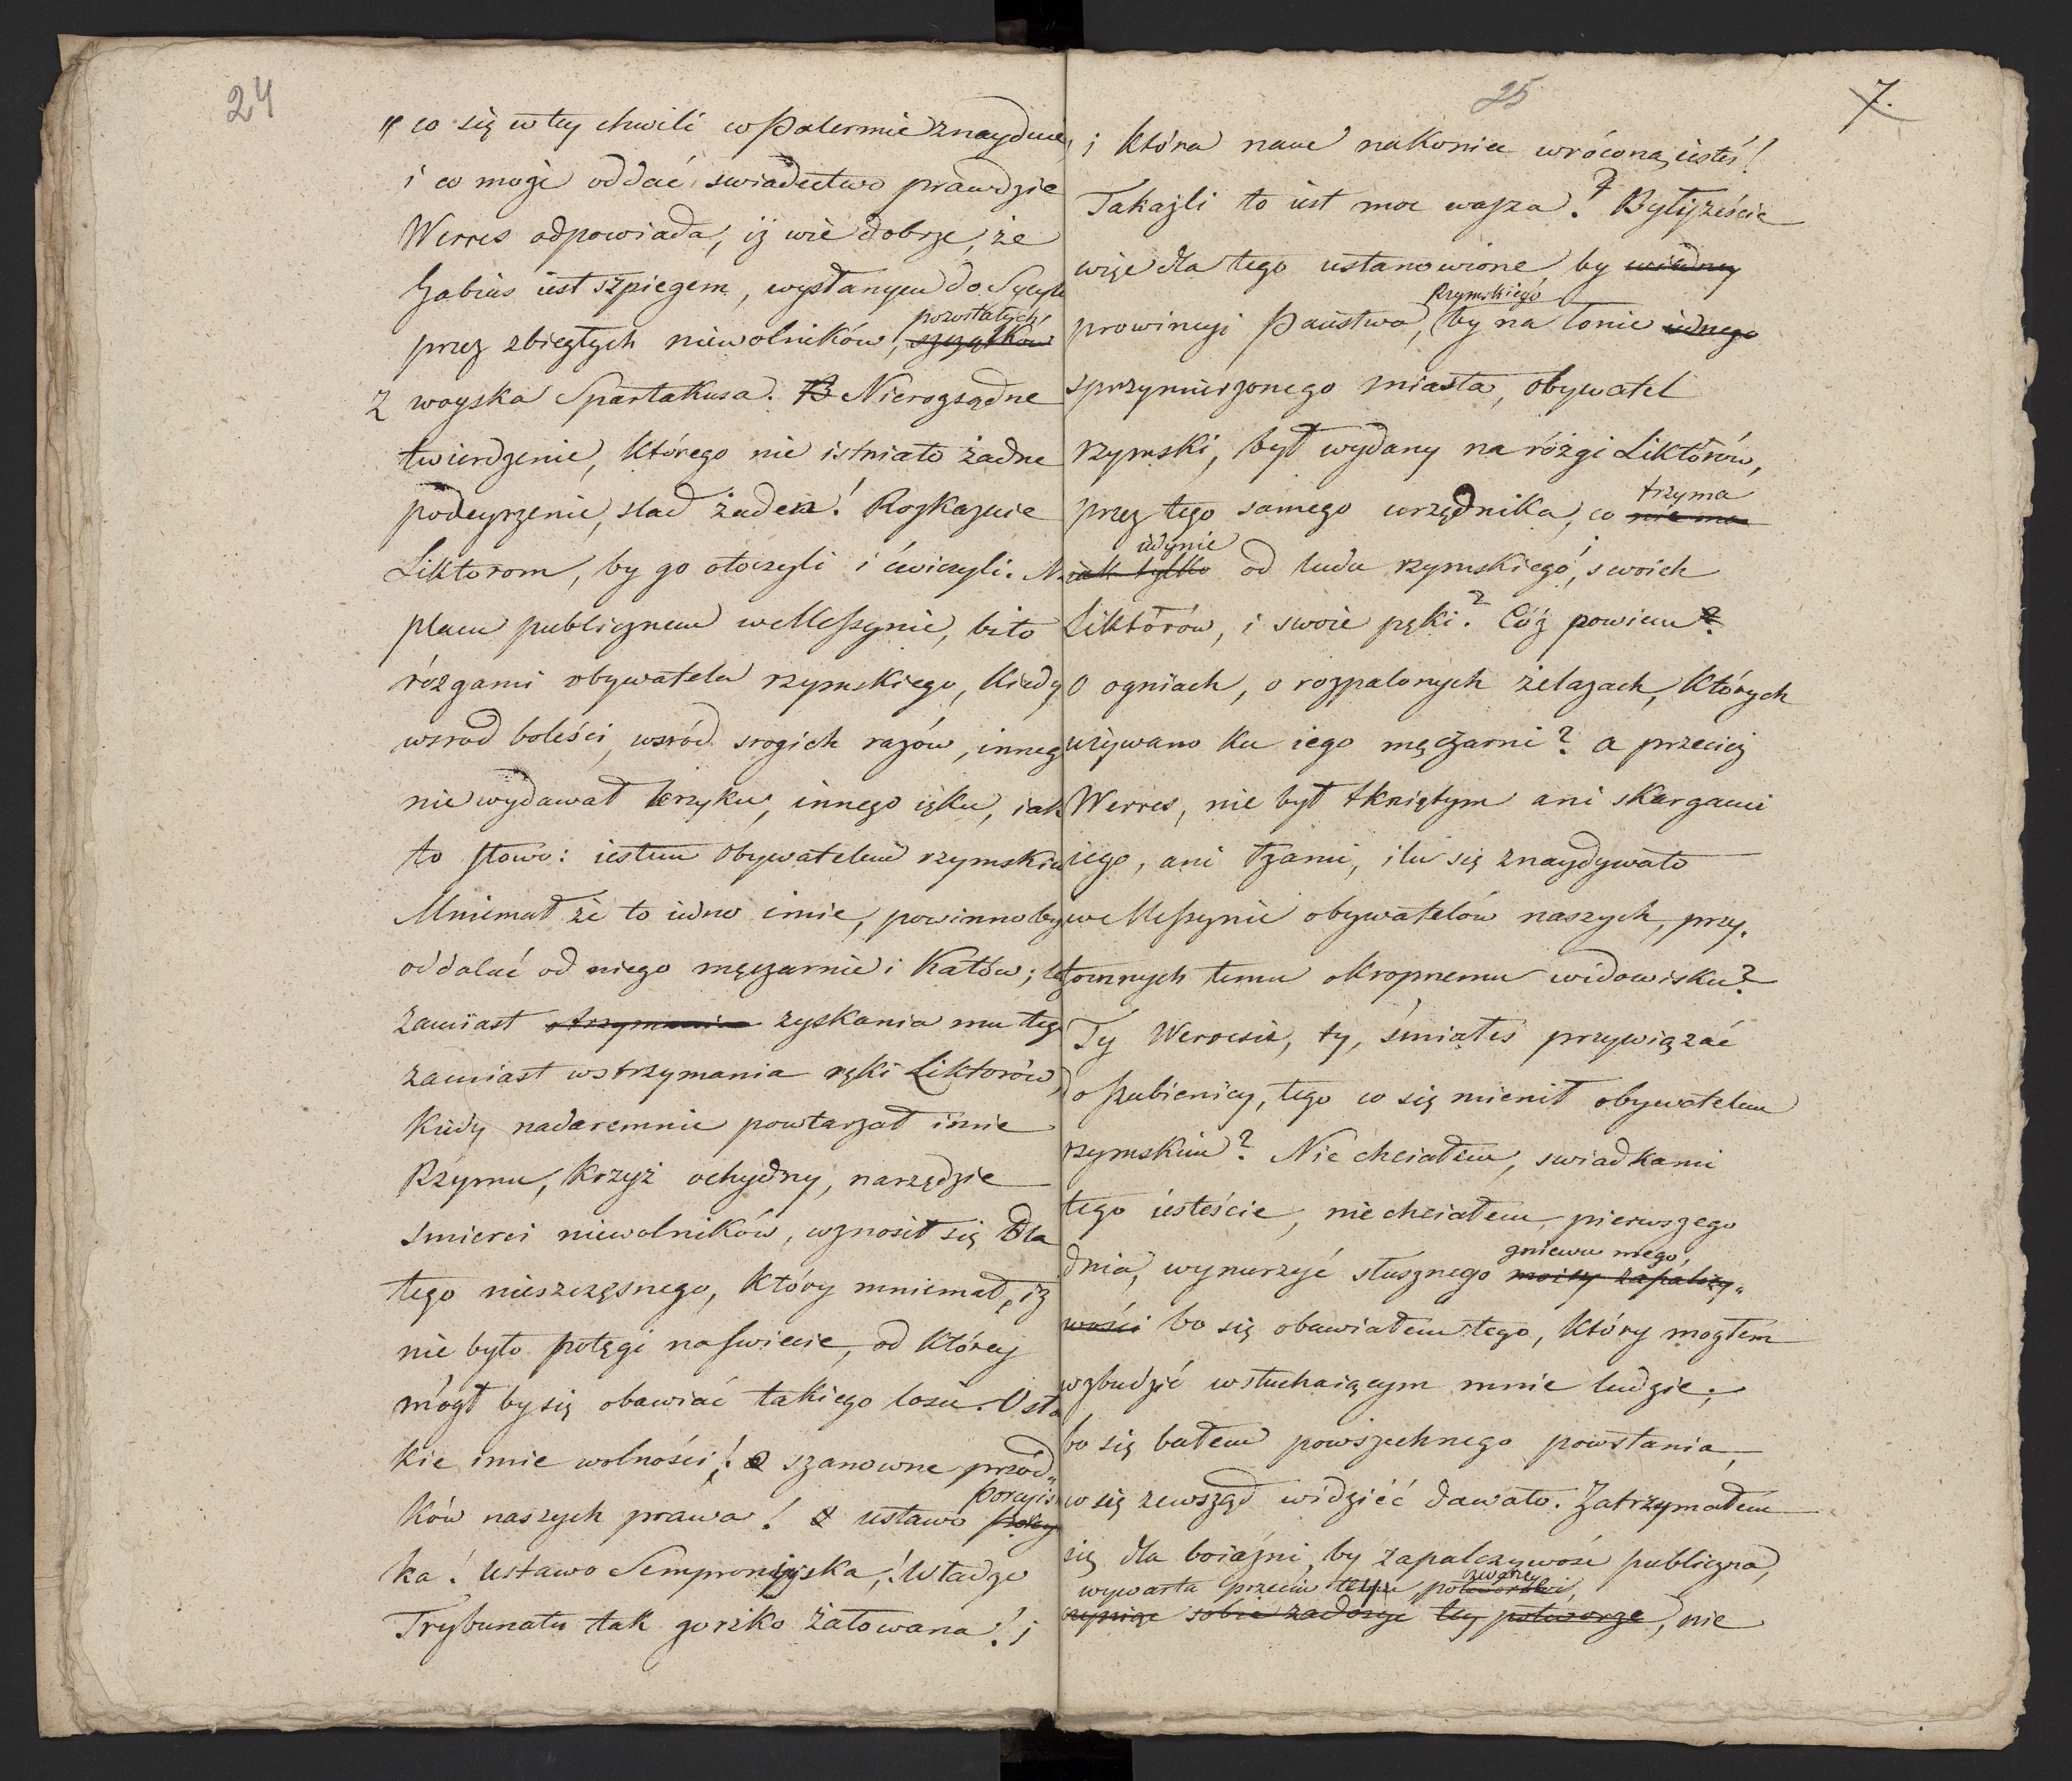 24
„ co się w tey chwili w Palermie znayduie,
i co może oddać swiadectwo prawdzie
Werres odpowiada, iż wie dobrze, że
Gabius iest szpiegem, wysłanym do Sycyli
pozostałych
przez zbiegłych niewolników, szczątków
z woyska Spartakusa. Nierozsądne
twierdzenie, którego nie istniało żadne
podeyrzenie, slad żaden! Rozkazuie
Liktorom, by go otoczyli i ćwiczyli. Na
placu publicznem w Messynie, bito
rózgami obywatela rzymskiego, kiedy
wsrod boleści, wsród srogich razów, innego
nie wydawał krzyku, innego ięku, iak
to słowo: iestem Obywatelem rzymskim
Mniemał że to iedno imie, powinno by
oddalać od niego męczarnie i katów; lecz
zamiast otrzymania zyskania mu tego
zamiast wstrzymania ręki Liktorów,
kiedy nadaremnie powtarzał imie
Rzymu, krzyż ochydny, narzędzie
smierci niewolników, wznosił się dla
tego nieszczęsnego, który mniemał, iż
nie było potęgi na swiecie, od którey
mógł by się obawiać takiego losu. O sło
kie imie wolności! o szanowne przod„
porcyis
ków naszych prawa! o ustawo porcy
ka! ustawo Semproniyska! Władzo
Trybunatu tak gorzko żałowana! i
25
7.
i która nam nakoniec wróconą iesteś!
Takażli to iest moc wasza? Byłyżeście
więc dla tego ustanowione, by w iedney
Rzymskiego
prowincyi Państwa, by na łonie iednego
sprzymierzonego miasta, obywatel
rzymski, był wydany na rózgi Liktorów,
trzyma
przez tego samego urzędnika, co nie ma
iedynie
iak tylko od ludu rzymskiego, swoich
Liktorów, i swoie pęki? Cóż powiem?
O ogniach, o rozpalonych żelazach, których
używano ku iego męczarni? a przecież
Werres, nie był tkniętym ani skargami
iego, ani łzami, ilu się znaydywało
w Messynie obywatelów naszych, przy„
tomnych temu okropnemu widowisku?
Ty Werresie, ty, śmiałeś przywiązać
do szubienicy, tego co się mienił obywatelem
rzymskim? Nie chciałem, swiadkami
tego iesteście, nie chciałem, pierwszego
gniewu mego,
dnia, wynurzyć słusznego moiey zapalczy„
wości bo się obawiałem tego, który mogłem
wzbudzić w słuchaiącym mnie ludzie;
bo się bałem powszechnego powstania,
co się zewsząd widzieć dawało. Zatrzymałem
się dla boiaźni, by zapalczywość publiczna,
wywarta przeciw temu potworowi,
czyniąc sobie zadosyć tey potworze, nie